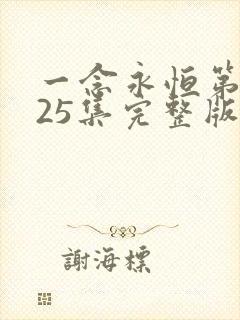 一念永恒第
25集完整版
謝海標